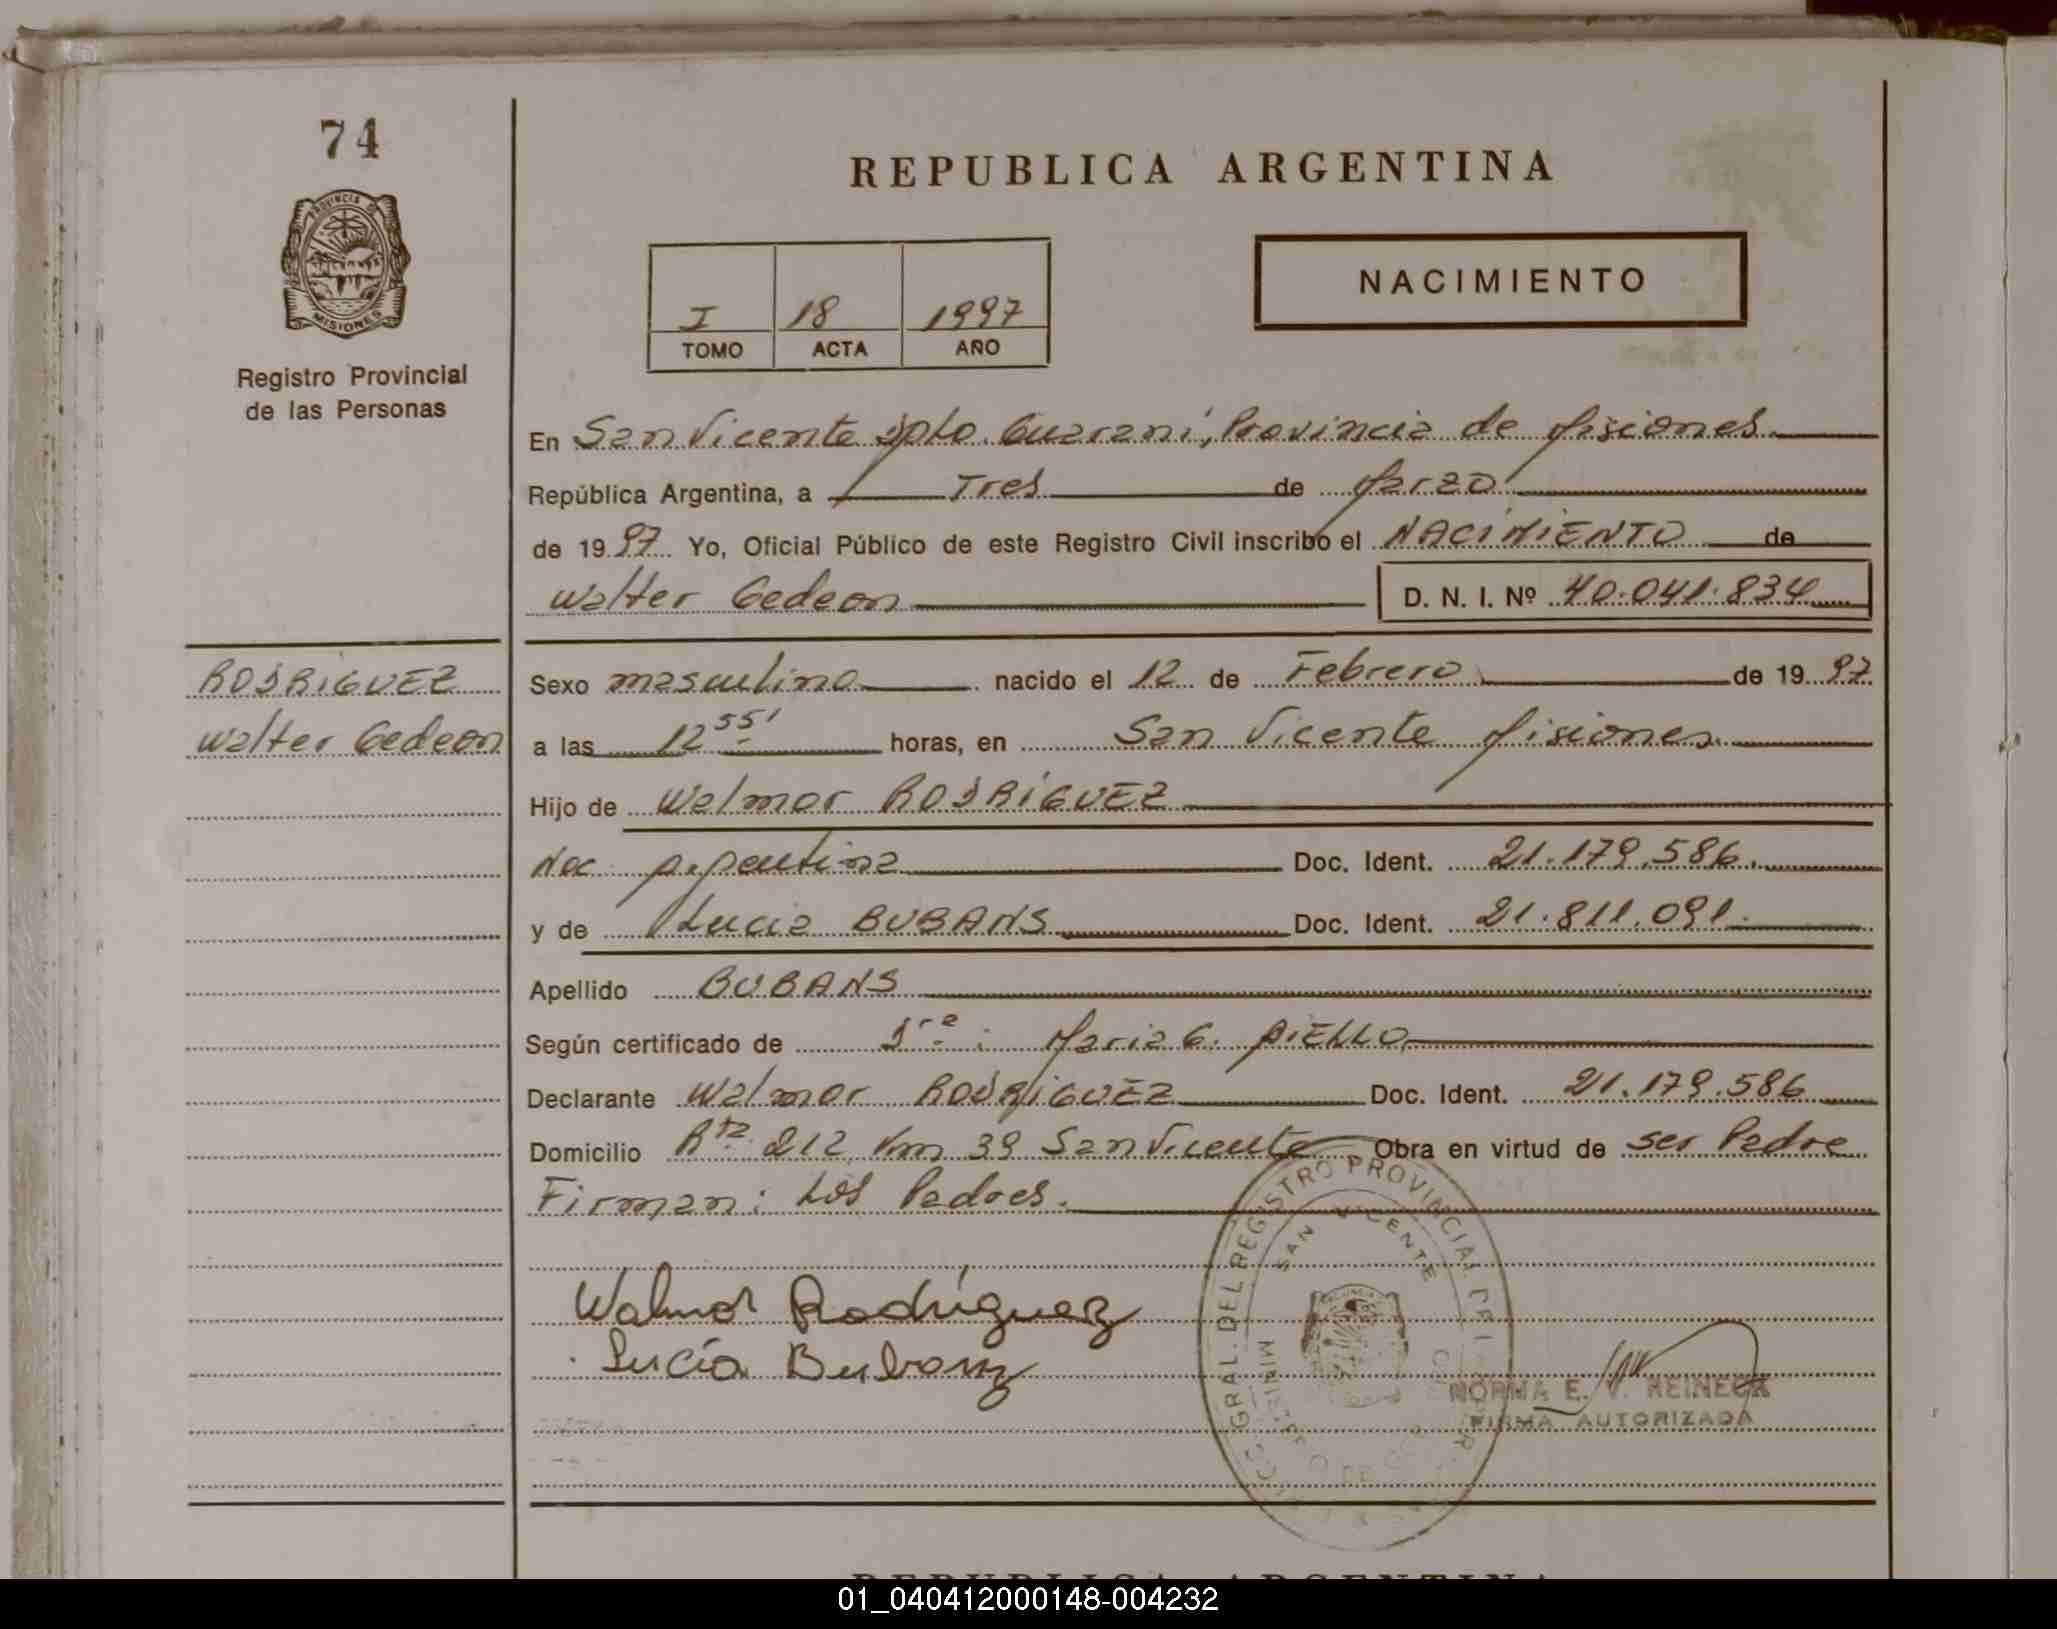 74
PROVINCIA DE
MISIONES
Registro Provincial
de las Personas
REPUBLICA ARGENTINA
I 18 1997
TOMO ACTA AÑO
NACIMIENTO
En San Vicente Dpto. Guaraní, Provincia de Misiones
República Argentina, a Tres de Marzo
de 1997 Yo, Oficial Público de este Registro Civil inscribo el NACIMIENTO de
Walter Gedeon D. N. I. Nº 40.041.834
RODRIGUEZ
Walter Gedeon
Sexo masculino nacido el 12 de Febrero de 1997
a las 12 55' horas, en San Vicente Misiones
Hijo de Walmor RODRIGUEZ
Nac Argentina Doc. Ident. 21.179.586.
y de Lucia BUBANS Doc. Ident. 21.811.091.
Apellido BUBANS
Según certificado de Dra: Maria G. AIELLO
Declarante Walmor RODRIGUEZ Doc. Ident. 21.179.586
Domicilio Rta 212 Km 39 San Vicente Obra en virtud de ser Padre
Firman: Los Padres.
Walmor Rodríguez
Lucía Bubanz
GRAL. DEL REGISTRO PROVINCIAL DE
SAN VICENTE
NORMA E. V. REINECK
FIRMA AUTORIZADA
REPUBLICA ARGENTINA
01_040412000148-004232